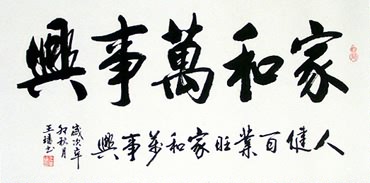 家和萬事興
人健百業旺家和萬事興
歲次辛
卯秋月
王